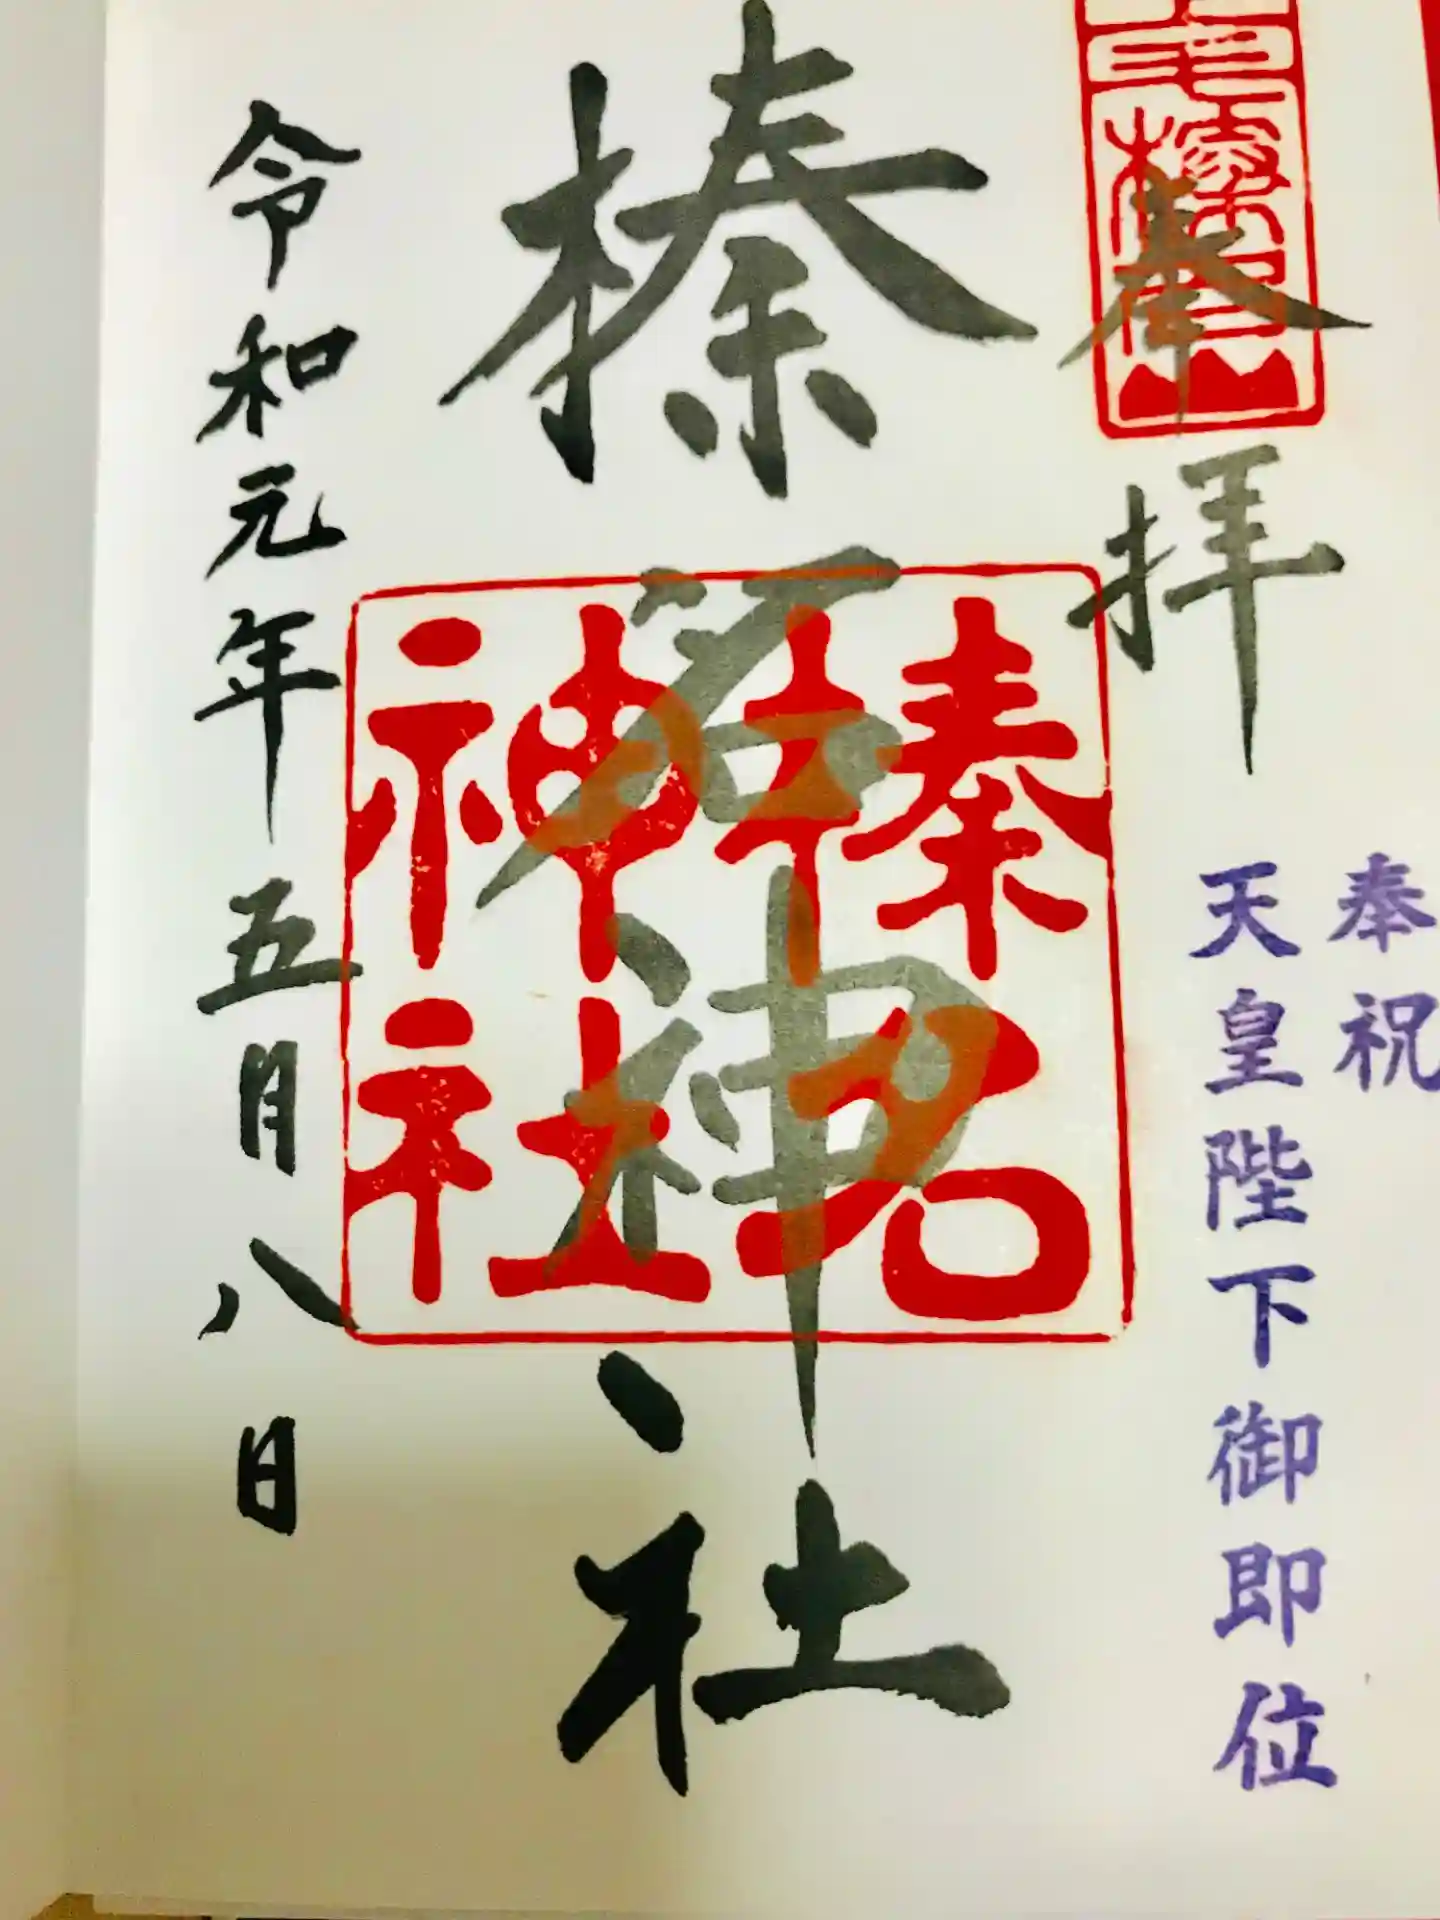 奉拝
奉祝
天皇陛下御即位
榛名神社
榛名
神社
令和元年五月八日